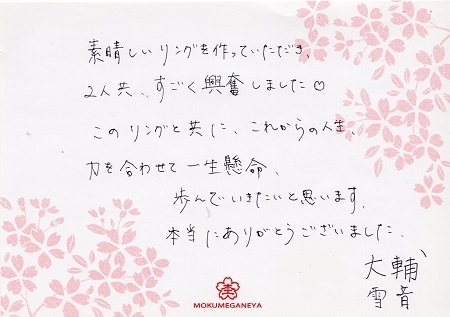 素晴しいリングを作っていただき、
2人共、すごく興奮しました♡
このリングと共に、これからの人生、
力を合わせて一生懸命、
歩んでいきたいと思います。
本当にありがとうございました。
大輔
雪音
MOKUMEGANEYA